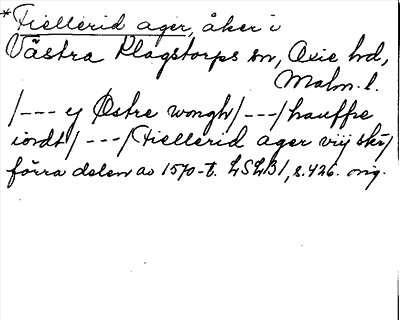 *Fiellerid ager, åker i
Västra Klagstorps sn, Oxie hd,
Malm. l.
/--- ej Østre wongh/---/hauffre
iordt/---/Fiellerid ager vij skr/
förra delen av 1570-t. LSLB1, s. 426. orig.